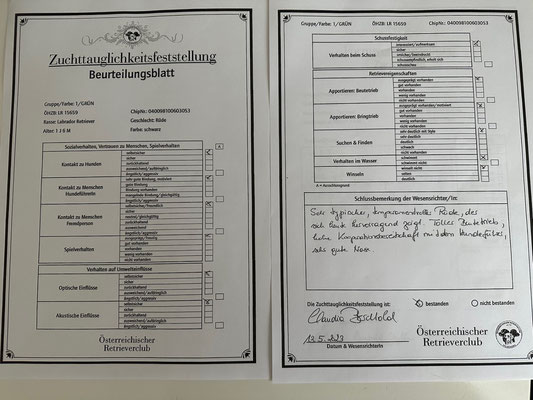 Zuchttauglichkeitsfeststellung
Beurteilungsblatt
Gruppe/Farbe: 1/GRÜN
ÖHZB: LR 15659 ChipNr.: 040098100603053
Rasse: Labrador Retriever Geschlecht: Rüde
Alter: 1 J 6 M Farbe: schwarz
Sozialverhalten, Vertrauen zu Menschen, Spielverhalten
Kontakt zu Hunden
selbstsicher
sicher
zurückhaltend
ausweichend/aufdringlich
ängstlich/aggressiv
Kontakt zu Menschen
Hundeführerin
sehr gute Bindung, motiviert
gute Bindung
Bindung vorhanden
mangelnde Bindung/gleichgültig
ängstlich/aggressiv
Kontakt zu Menschen
Fremdperson
selbstsicher/freundlich
sicher
neutral/gleichgültig
zurückhaltend
ausweichend
ängstlich/aggressiv
Spielverhalten
ausgeprägt/freudig
gut vorhanden
vorhanden
wenig vorhanden
nicht vorhanden
Verhalten auf Umwelteinflüsse
Optische Einflüsse
selbstsicher
sicher
zurückhaltend
ausweichend/aufdringlich
ängstlich/aggressiv
Akustische Einflüsse
selbstsicher
sicher
zurückhaltend
ausweichend/aufdringlich
ängstlich/aggressiv
Österreichischer
Retrieverclub
Gruppe/Farbe: 1/GRÜN ÖHZB: LR 15659 ChipNr.: 040098100603053
Schussfestigkeit
Verhalten beim Schuss
interessiert/aufmerksam
sicher
schussempfindlich, erholt sich
schussscheu
Retrievereigenschaften
Apportieren: Beutetrieb
ausgeprägt vorhanden
gut vorhanden
vorhanden
wenig vorhanden
nicht vorhanden
Apportieren: Bringtrieb
ausgeprägt vorhanden/motiviert
gut vorhanden
vorhanden
wenig vorhanden
nicht vorhanden
Suchen & Finden
sehr deutlich mit Style
deutlich
schwach
nicht vorhanden
Verhalten im Wasser
schwimmt
schwimmt nicht
Winseln
selten
deutlich
A = Ausschlussgrund
Schlussbemerkung der Wesensrichter/in:
Sehr typischer, temperamentvoller Rüde, der
sich heute hervorragend zeigt. Tolles Beutetrieb,
hohe Kooperationsbereitschaft mit dem Hundeführer,
sehr gute Nase.
Die Zuchttauglichkeitsfeststellung ist: bestanden nicht bestanden
Claudia
Datum & WesensrichterIn
Österreichischer
Retrieverclub